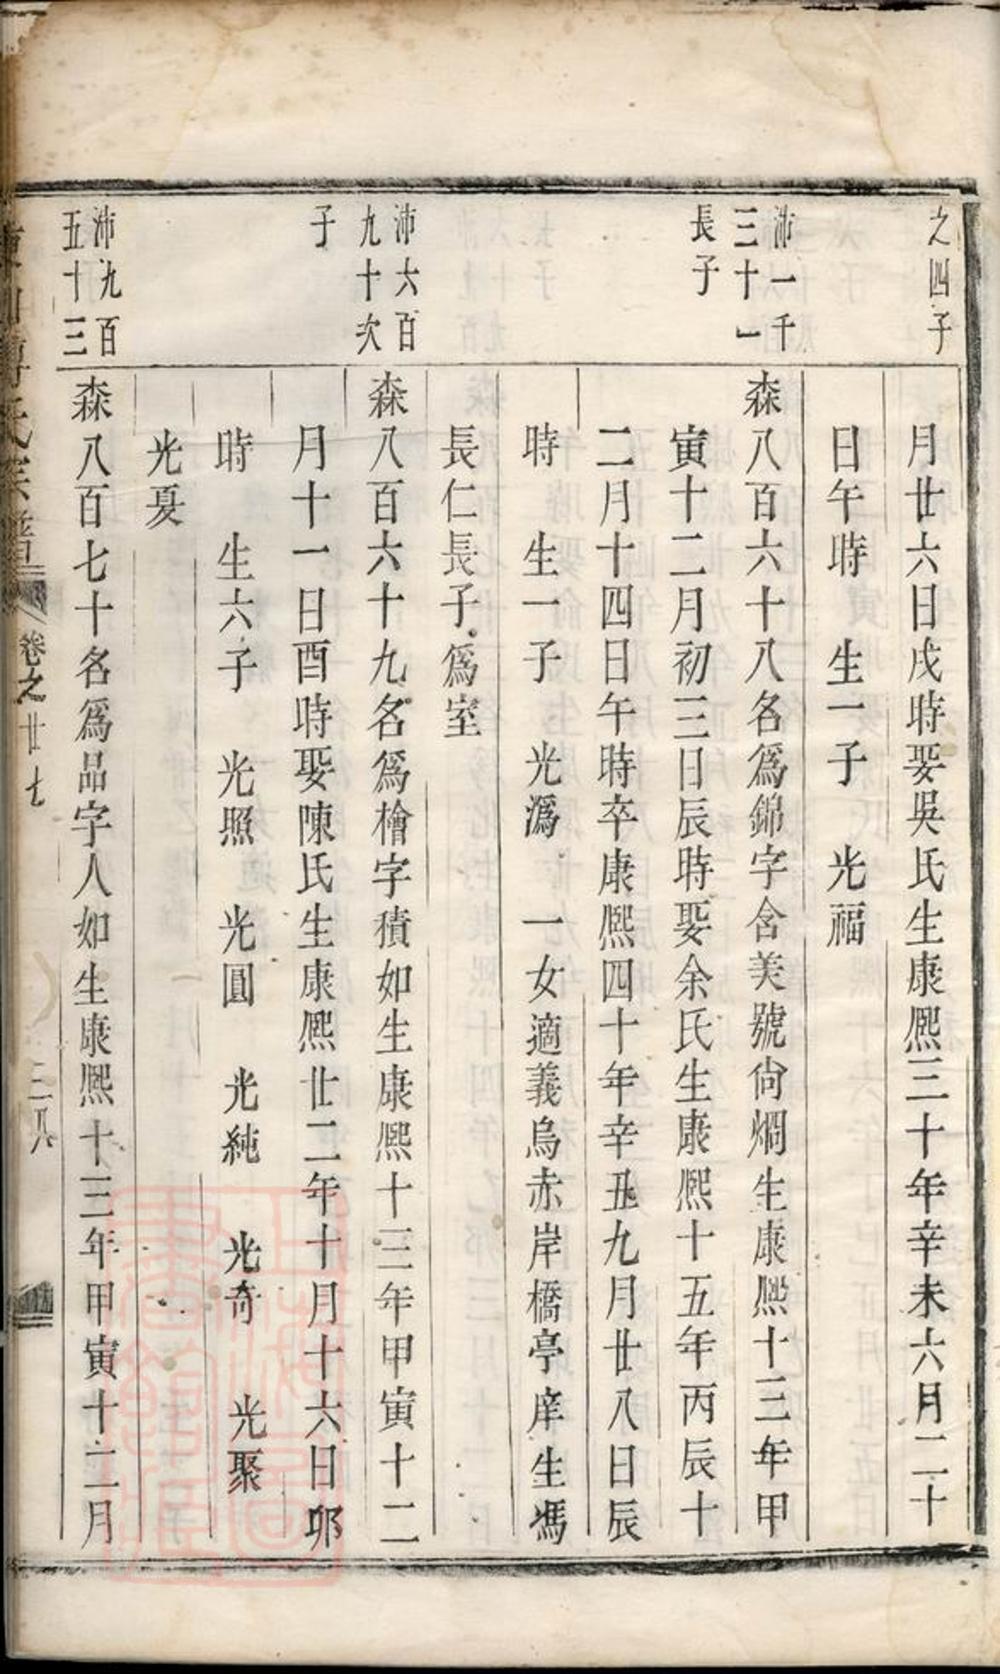 之四子
月廿六日戌時娶吳氏生康熙三十年辛未六月二十
日午時　生一子　光福
沛一千
三十一
長子
森八百六十八名爲錦字含美號尙烱生康熙十三年甲
寅十二月初三日辰時娶余氏生康熙十五年丙辰十
二月十四日午時卒康熙四十年辛丑九月廿八日辰
時　生一子　光潙　一女適義烏赤岸橋亭庠生馮
長仁長子爲室
沛六百
九十次
子
森八百六十九名爲檜字積如生康熙十三年甲寅十二
月十一日酉時娶陳氏生康熙廿二年十月十六日邜
時　生六子　光照　光圓　光純　光奇　光聚
光夏
沛九百
五十三
森八百七十名爲品字人如生康熙十三年甲寅十二月
氏宗譜
卷之廿七
三八